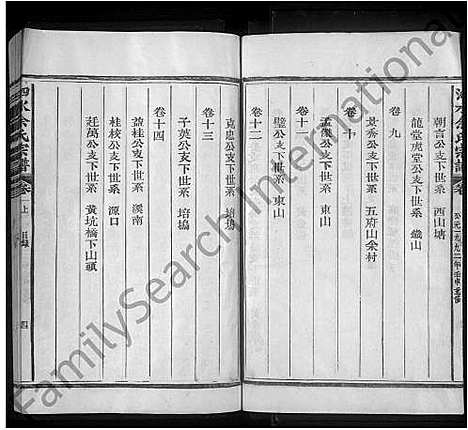 朝言公支下世系 西山塘
卷九
龍堂虎堂公支下世系 鐵山
景秀公支下世系 五府山余村
卷十
孟儀公支下世系 東山
卷十一
璧公支下世系 東山
卷十二
克忠公支下世系 培塢
卷十三
子英公支下世系 培塢
卷十四
益桂公支下世系 溪南
桂校公支下世系 源口
赶萬公支下世系 黄坑橋下山頭
水余氏宗譜 卷一上 四
FamilySearch International